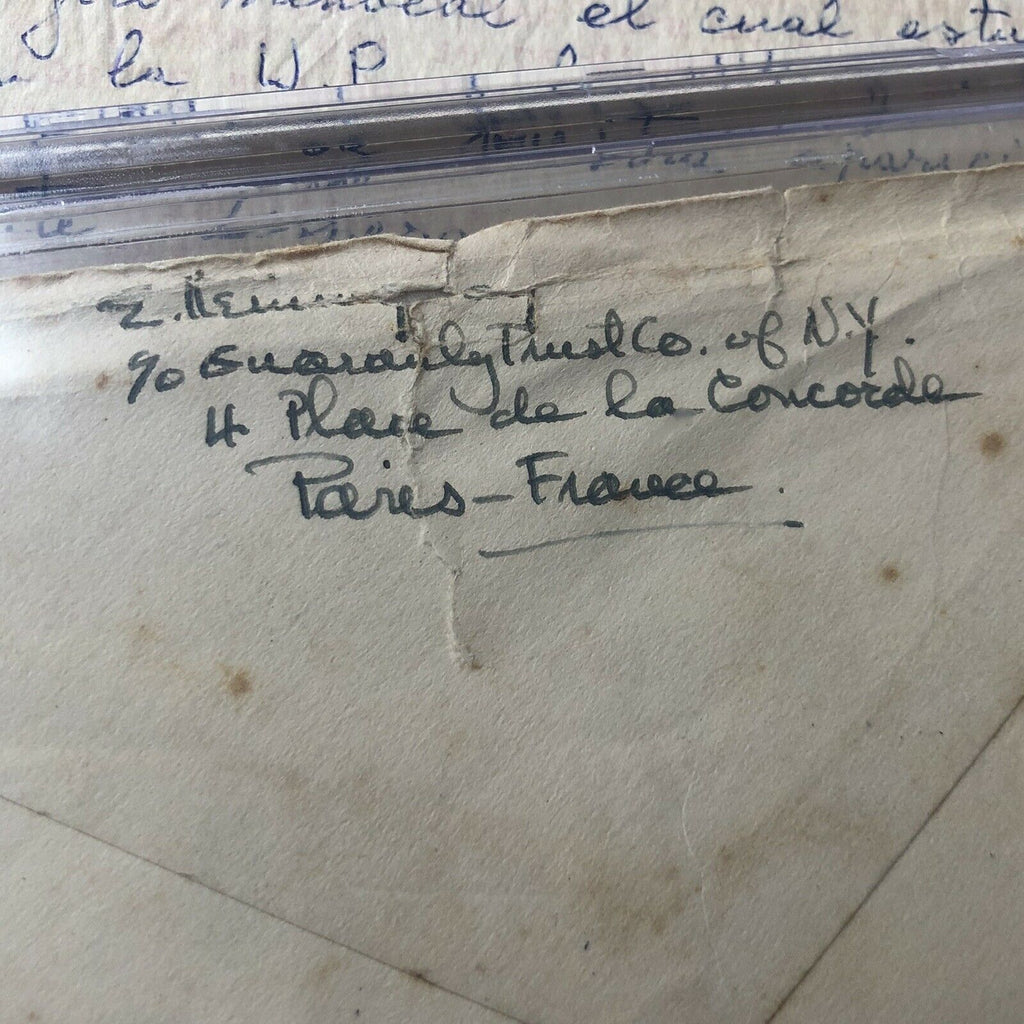 mensual el cual estu
la W.P.
de
E. Hemingway
c/o Guaranty Trust Co. of N.Y.
4 Place de la Concorde
Paris – France.